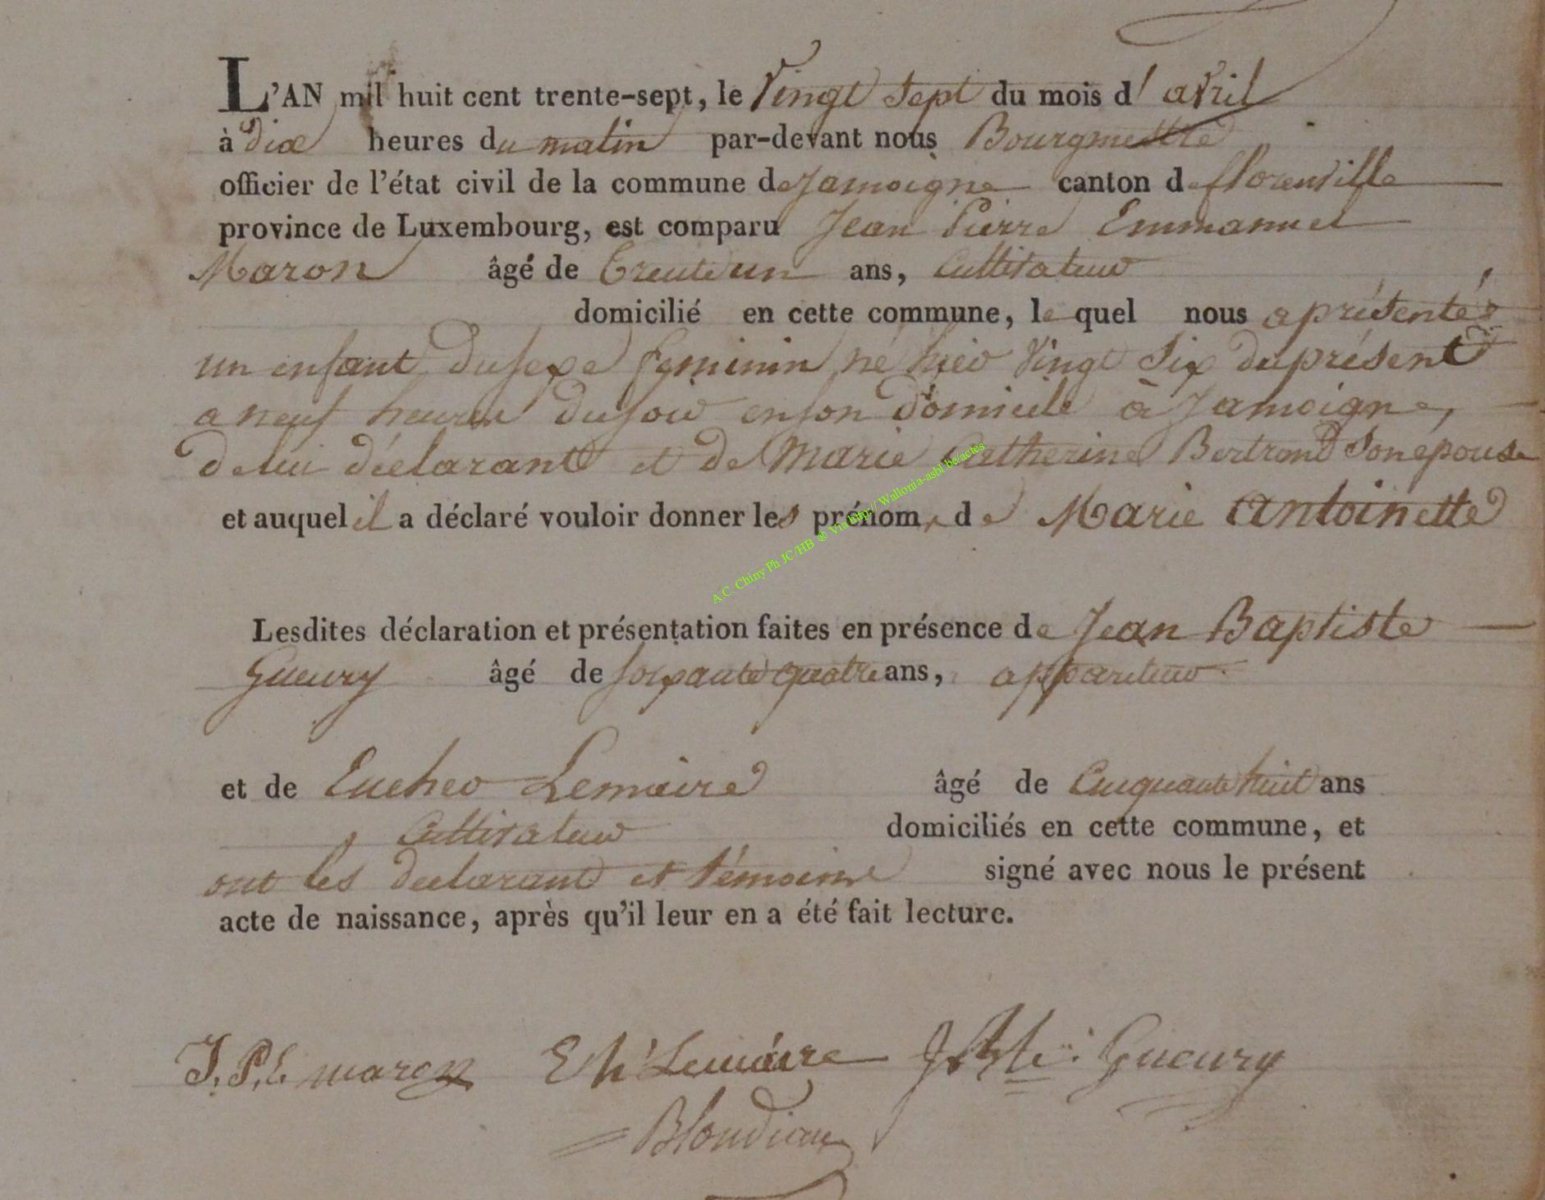 L'AN mil huit cent trente-sept, le Vingt Sept du mois d'avril
à dix heures du matin par-devant nous Bourgmestre
officier de l'état civil de la commune de Jamoigne canton de florenville
province de Luxembourg, est comparu Jean Pierre Emmanuel
Maron âgé de trente un ans, Cultivateur
domicilié en cette commune, le quel nous a présenté
un enfant du sexe feminin né hier Vingt Six du présent
a neuf heures du soir en son domicile à Jamoigne,
de lui déclarant et de Marie Catherine Bertrand Son épouse
et auquel il a déclaré vouloir donner les prénoms de Marie Antoinette
A.C. Chiny Ph JC/HB & Via http// Wallonia-asbl.be/actes
Lesdites déclaration et présentation faites en présence de Jean Baptiste
Gueury âgé de soixante quatre ans, appariteur
et de Eucher Lemaire âgé de Cinquante huit ans
Cultivateur domiciliés en cette commune, et
ont les declarant et témoins signé avec nous le présent
acte de naissance, après qu'il leur en a été fait lecture.
J. P. E maron Eh' Lemaire JBte Gueury
Blondiau